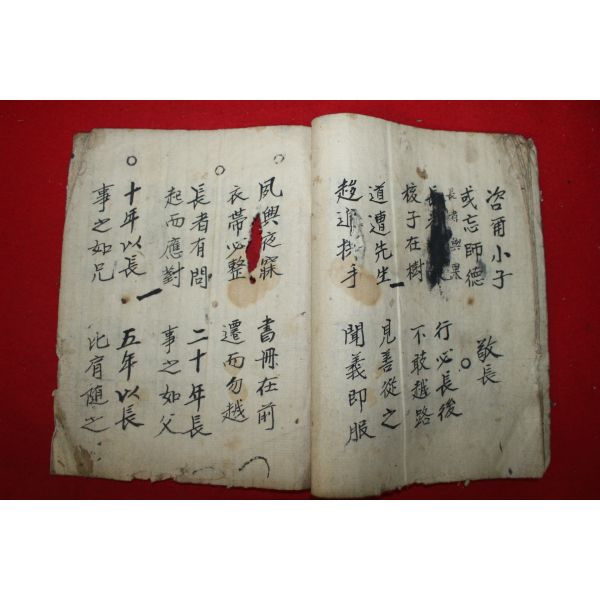 咨爾小子 敬長
或忘師德
長者與果
長 行必長後
核子在樹 不敢越路
道遭先生 見善從之
趍進拱手 聞義即服
夙興夜寐 書冊在前
衣帶必整 遷而勿越
長者有問 二十年長
起而應對 事之如父
十年以長 五年以長
事之如兄 比肩隨之